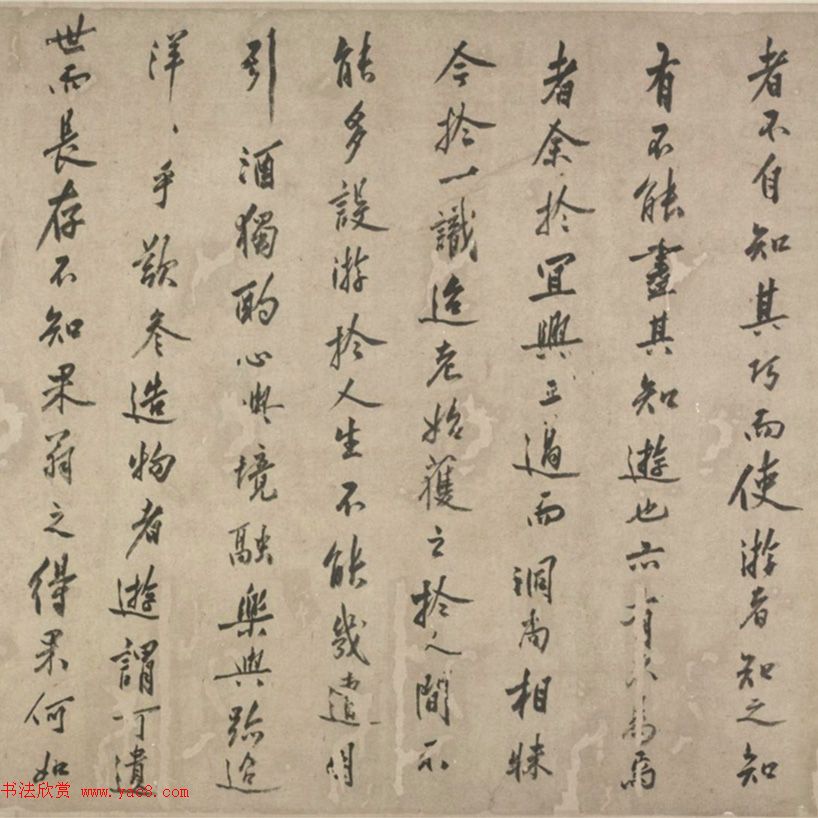 者不自知其巧而使游者知之知
有不能盡其知遊也亦有為焉
者余於宜興過而洞尚相昧
今於一識迨老始獲之於人間所
能多設游於人生不能幾遭
引酒獨酌心境融樂與跡迨
洋〻乎歎參造物者遊謂可遺
世而長存不知果翁之得果何如
书法欣赏 www.yac8.com